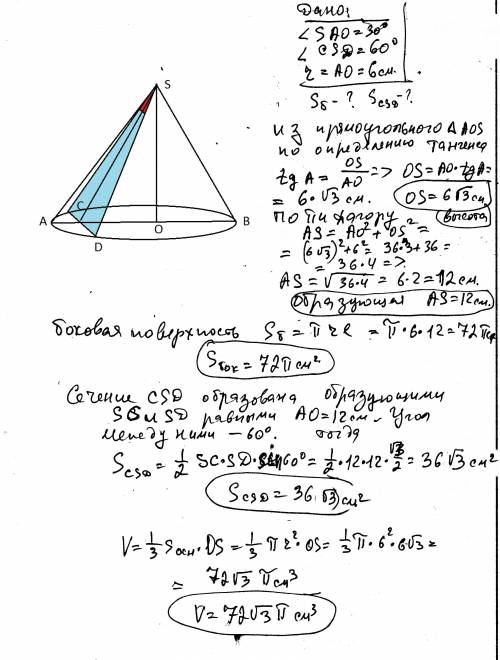 Дано:
∠ SAO = 30°
∠ CSD = 60°
r = AO = 6 см.
Sб - ? Scsd - ?
S
A
C
D
O
B
из прямоугольного Δ AOS
по определению тангенса
tg A = OS/AO => OS = AO · tg A =
= 6 · √3 см. OS = 6√3 см
высота
По Пифагору
AS = AO² + OS² =
= (6√3)² + 6² = 36·3 + 36 =
= 36·4 =>
AS = √36·4 = 6·2 = 12 см.
Образующая AS = 12 см.
боковая поверхность Sб = π r l = π·6·12 = 72π
Sбок = 72π см²
Сечение CSD образована образующими
SC и SD равными AO = 12 см. Угол
между ними – 60°. тогда
Scsd = 1/2 SC·SD·sin60° = 1/2·12·12·√3/2 = 36√3 см²
Scsd = 36√3 см²
V = 1/3 Sосн·OS = 1/3 π r²·OS = 1/3 π·6²·6√3 =
= 72√3 π см³
V = 72√3 π см³